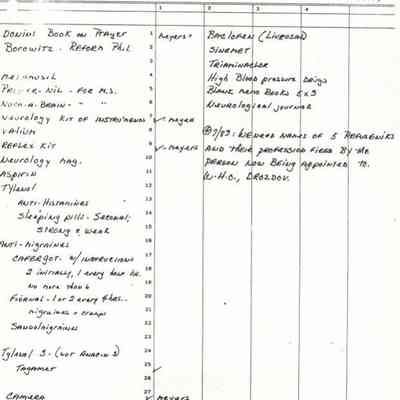 1 2 3 4
Donini Book on Prayer 1 meyers
Borowitz - Reform Phil 2
3
4
- Nil - for M.S. 5
- Brain - " " 6
Neurology Kit of Instruments 7 ✓ - mayer
Valium 8
Reflex Kit 9 ✓ - mayers
Neurology mag. 10
Aspirin 11
Tylenol 12
Anti-Histamines 13
Sleeping pills - Seconal; 14
Strong & weak 15
Anti-migraines 16
Cafergot w/ instructions 17
2 initially, 1 every 18
no more than 6 19
Fiorinal - 1 or 2 every 4 hrs. 20
migraines + cramps 21
Sandomigraines 22
23
Tylenol 3 - (not Anacin 3) 24
Tagamet 25 ✓
26
27
Camera ✓ meyers
Baclofen (Lioresal)
Sinemet
Triaminacler
High Blood pressure Drugs
Blank memo Books 5x3
Neurological journal
@ 9/83: We need names of 5 Refuseniks
and their profession fired by the
person now being appointed to
W.H.O., Drozdov.